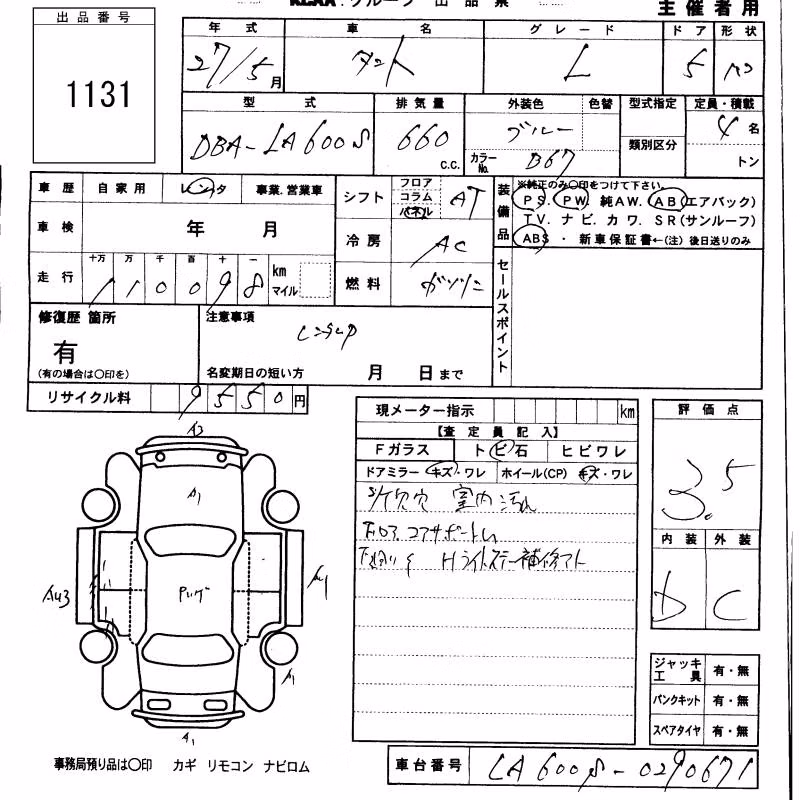 グループ 出品票 主催者用
出品番号
1131
年式 車名 グレード ドア 形状
27/5月 タント L 5
型式 排気量 外装色 色替 型式指定 定員・積載
DBA-LA600S 660 C.C. ブルー 類別区分 4名
カラーNo. B67 トン
車歴 自家用 レンタ 事業.営業車 シフト フロア コラム パネル AT
装備品 ※純正のみ○印をつけて下さい。
PS. PW. 純AW. AB(エアバック)
TV. ナビ. カワ. SR(サンルーフ)
ABS・新車保証書←(注)後日送りのみ
車検 年 月 冷房 AC
走行 十万 万 千 百 十 一 km マイル
110098
燃料 ガソリン
セールスポイント
修復歴 箇所 有 (有の場合は○印を)
注意事項 レンタUP
名変期日の短い方 月 日まで
リサイクル料 9550円
現メーター指示 km
【査定員記入】
Fガラス トビ石 ヒビワレ
ドアミラー キズ・ワレ ホイール(CP) キズ・ワレ
室内汚れ
補修
評価点
3.5
内装 外装
D C
ジャッキ 工具 有・無
パンクキット 有・無
スペアタイヤ 有・無
A3
A1
AU3
A1
A1
事務局預り品は○印 カギ リモコン ナビロム
車台番号 LA600S-0290671